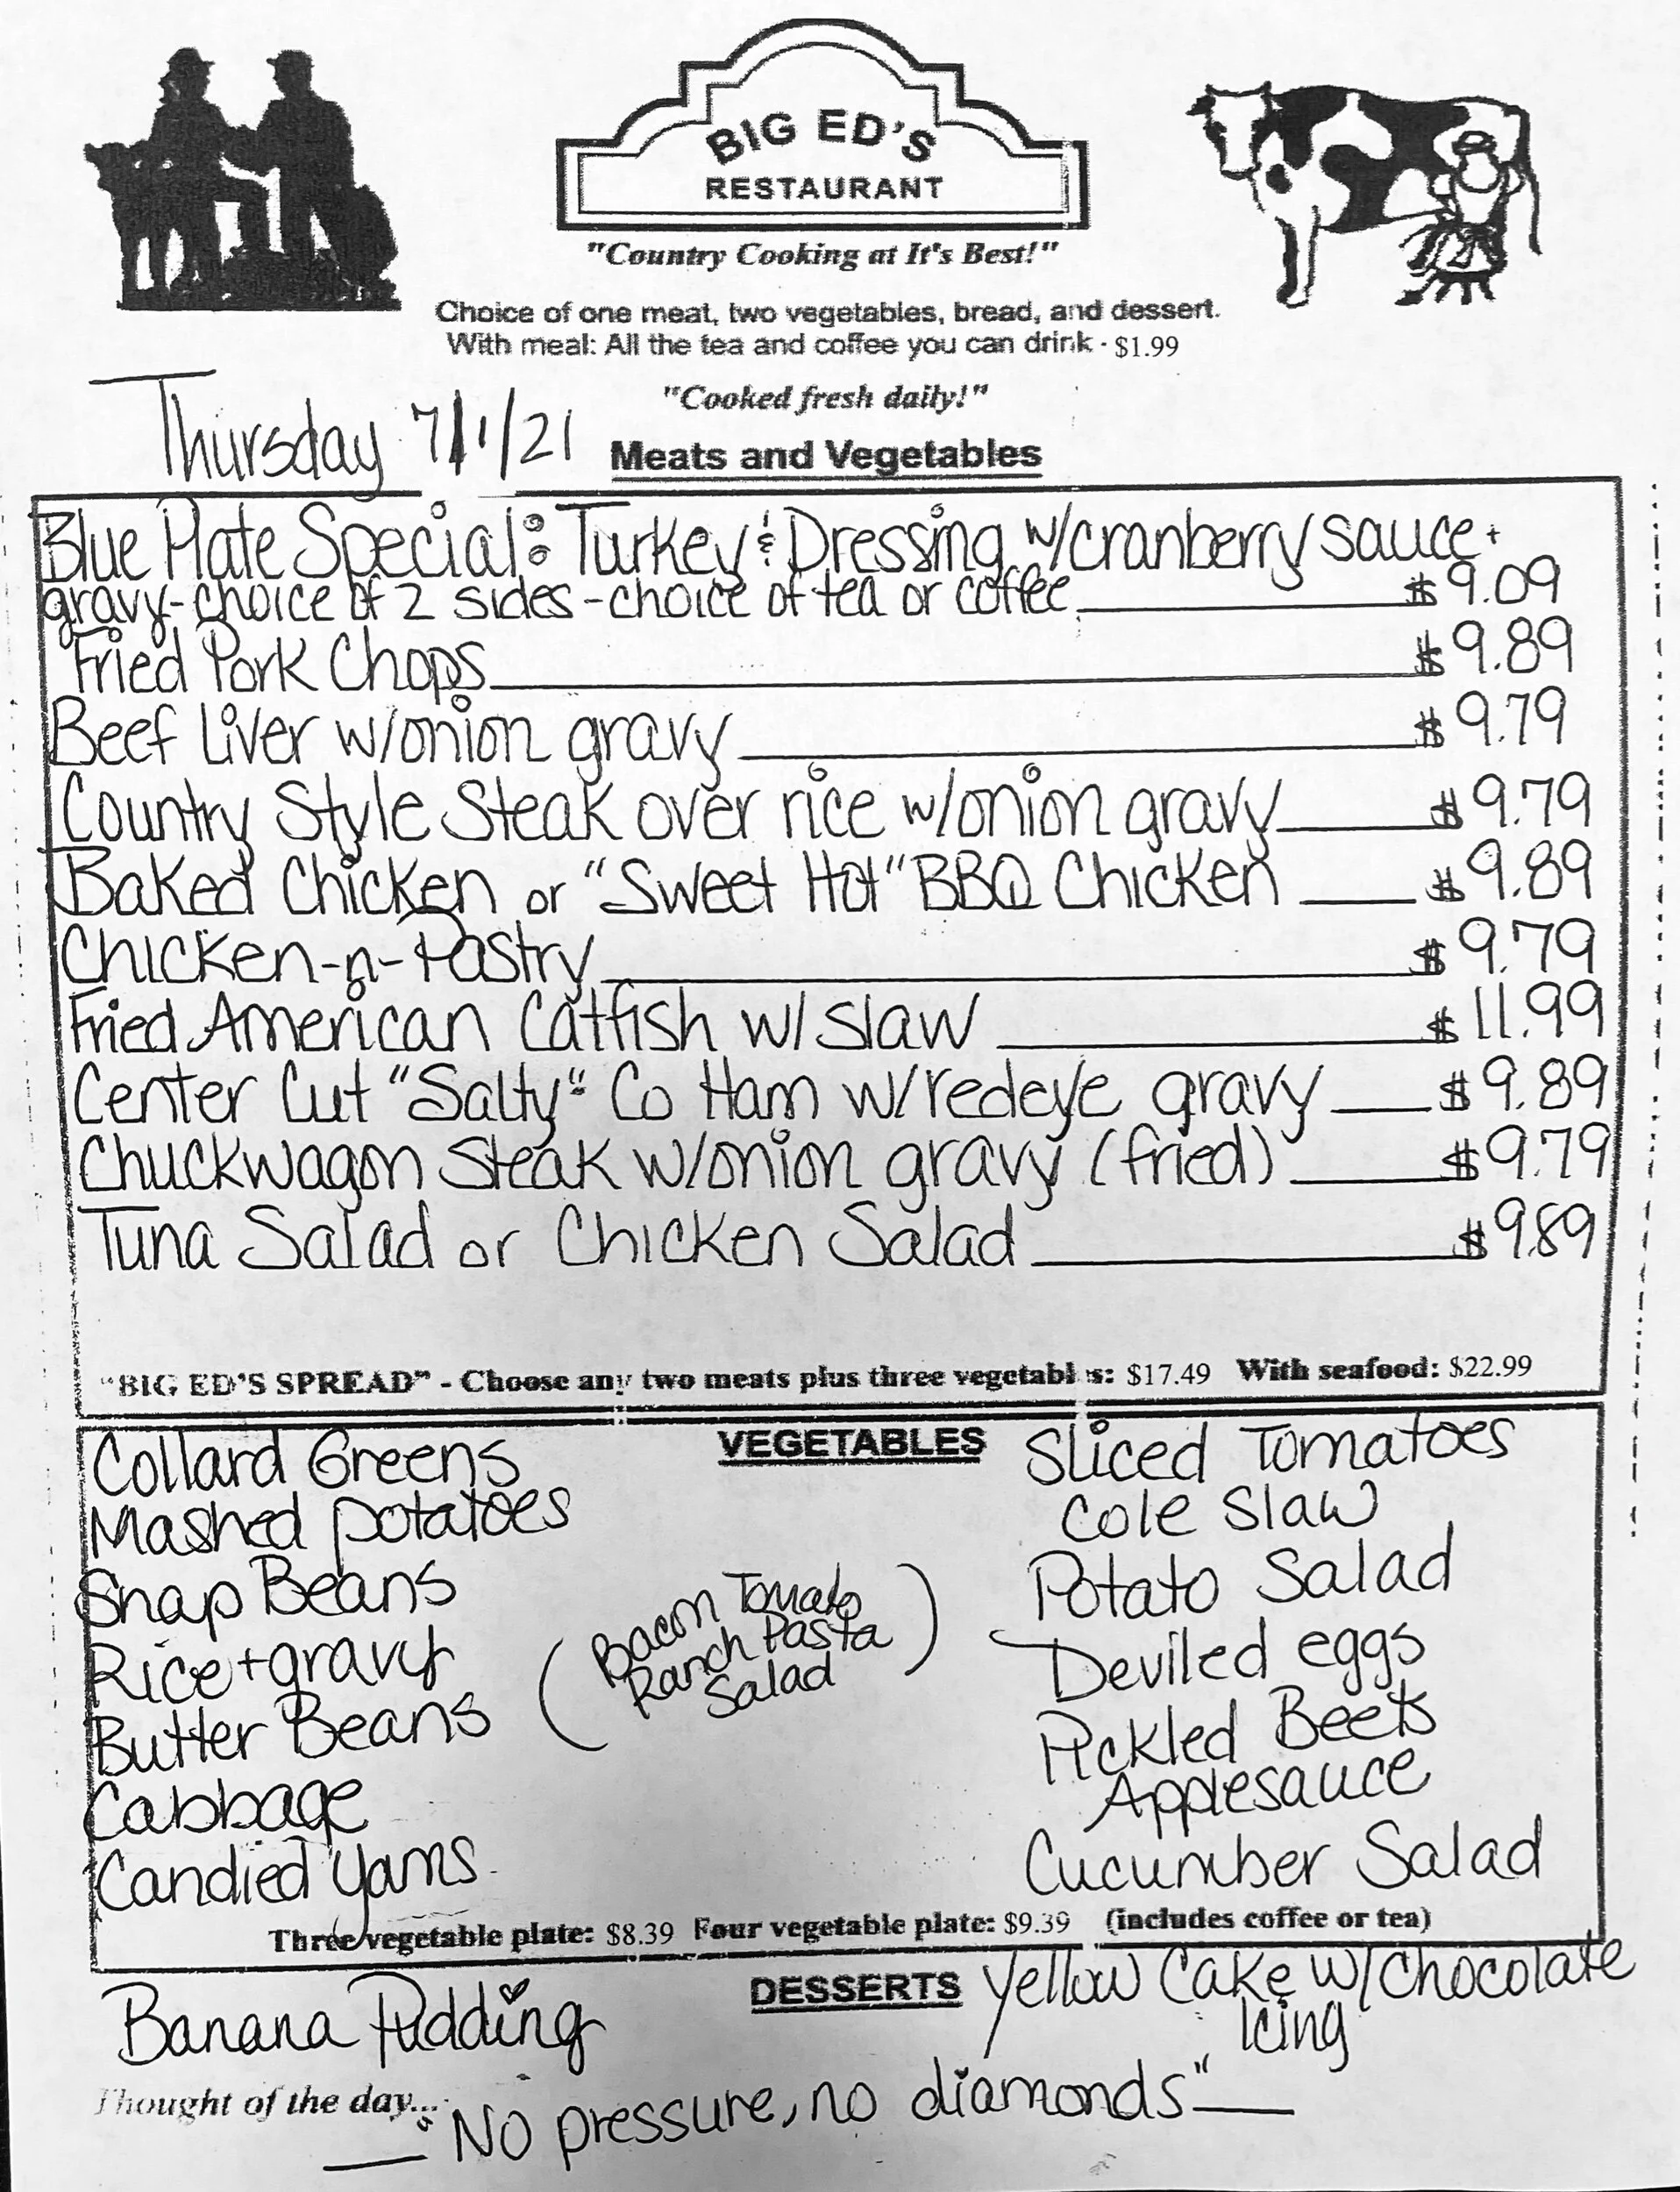 BIG ED'S
RESTAURANT
"Country Cooking at It's Best!"
Choice of one meat, two vegetables, bread, and dessert.
With meal: All the tea and coffee you can drink - $1.99
"Cooked fresh daily!"
Thursday 7/1/21
Meats and Vegetables
Blue Plate Special: Turkey & Dressing w/cranberry sauce +
gravy-choice of 2 sides-choice of tea or coffee $9.09
Fried Pork Chops $9.89
Beef Liver w/onion gravy $9.79
Country Style Steak over rice w/onion gravy $9.79
Baked Chicken or "Sweet Hot" BBQ Chicken $9.89
Chicken-n-Pastry $9.79
Fried American Catfish w/slaw $11.99
Center Cut "Salty" Co Ham w/redeye gravy $9.89
Chuckwagon Steak w/onion gravy (fried) $9.79
Tuna Salad or Chicken Salad $9.89
"BIG ED'S SPREAD" - Choose any two meats plus three vegetables: $17.49 With seafood: $22.99
VEGETABLES
Collard Greens
Mashed potatoes
Snap Beans
Rice + gravy
Butter Beans
Cabbage
Candied Yams
(Bacon Tomato
Ranch Pasta
Salad)
Sliced Tomatoes
Cole Slaw
Potato Salad
Deviled eggs
Pickled Beets
Applesauce
Cucumber Salad
Three vegetable plate: $8.39 Four vegetable plate: $9.39 (includes coffee or tea)
DESSERTS
Banana Pudding
Yellow Cake w/Chocolate
Icing
Thought of the day...
"No pressure, no diamonds"